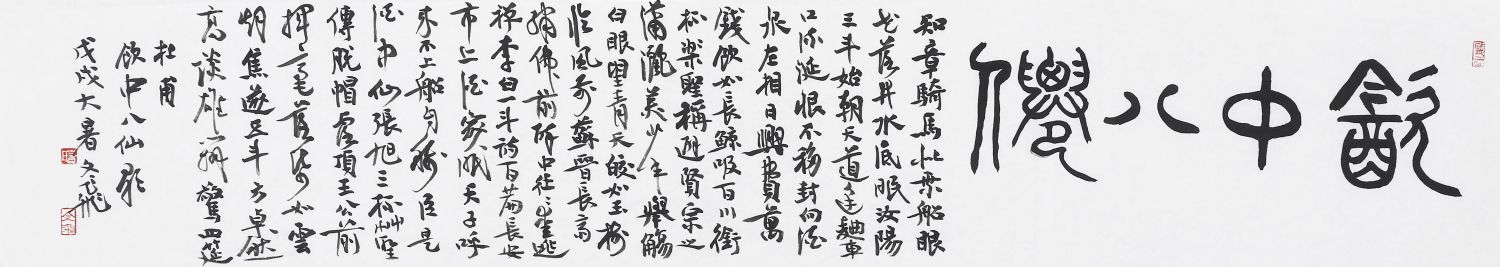 飲中八僊
知章騎馬似乘船眼
花落井水底眠汝陽
三斗始朝天道逢麯車
口流涎恨不移封向酒
泉左相日興費萬
錢飲如長鯨吸百川銜
杯樂聖稱避賢宗之
瀟灑美少年舉觴
白眼望青天皎如玉樹
臨風前蘇晉長齋
繡佛前醉中往〻愛逃
禪李白一斗詩百篇長安
市上酒家眠天子呼
來不上船自稱臣是
酒中仙張旭三杯艸聖
傳脫帽露頂王公前
揮毫落紙如雲
烟焦遂五斗方卓然
高談雄辯驚四筵
杜甫
飲中八仙歌
戊戌大暑文飛